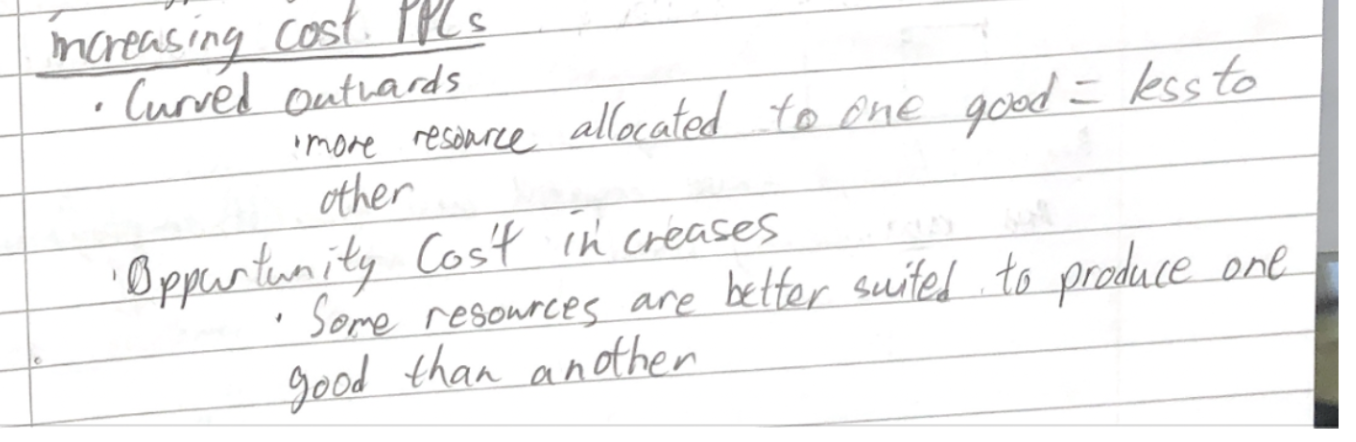 increasing cost PPCs
• Curved outwards
• more resource allocated to one good = less to
other
• Oppurtunity Cost increases
• Some resources are better suited to produce one
good than another